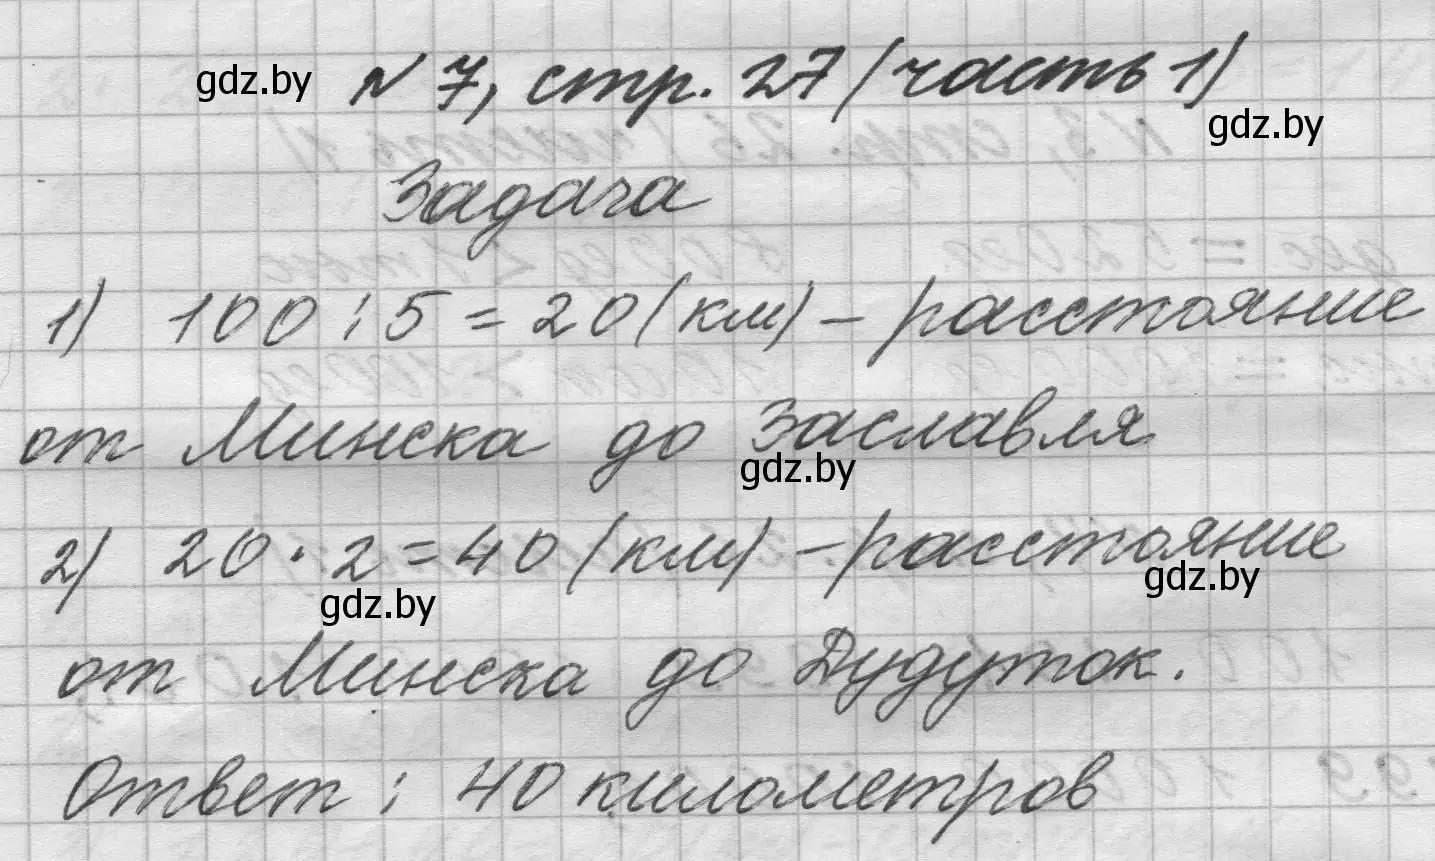 gdz.by № 7, стр. 27 (часть 1)
gdz.by
Задача
1) 100 : 5 = 20 (км) – расстояние
от Минска до Заславля
gdz.by
2) 20 · 2 = 40 (км) – расстояние
gdz.by gdz.by
от Минска до Дудуток.
Ответ : 40 километров